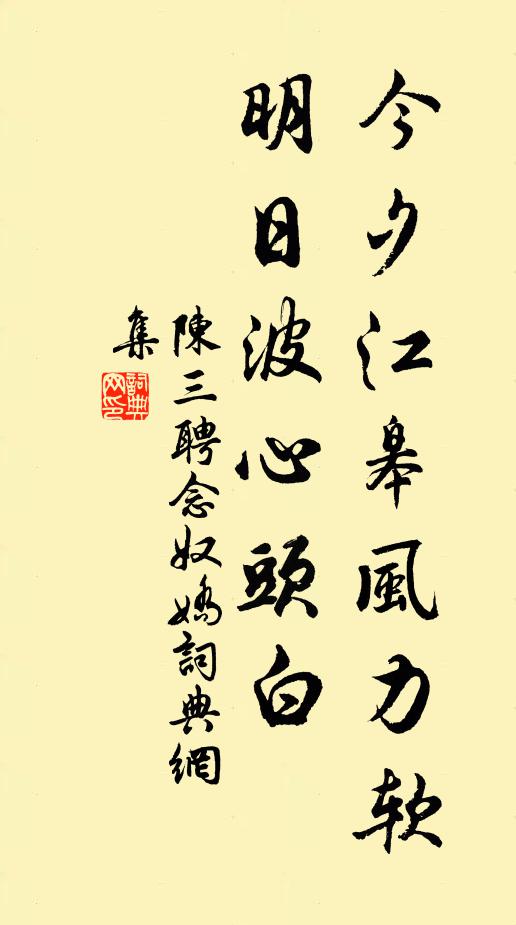 今夕江皋風力軟
明日波心頭白
陳三聘念奴嬌詞典網
集
詞典
网印